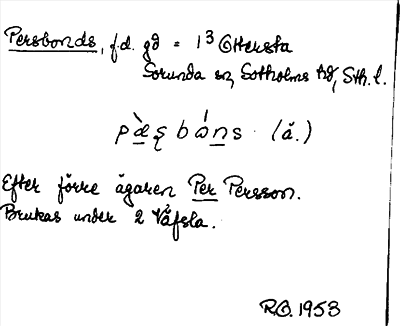 Persbonds, f.d. gd = 1³ Ottersta
Sorunda sn, Sotholms hd, Sth. l.
pæ̀ʂ bóns (ä.)
Efter förre ägaren Per Persson.
Brukas under 2 Väfsla.
R.O. 1953